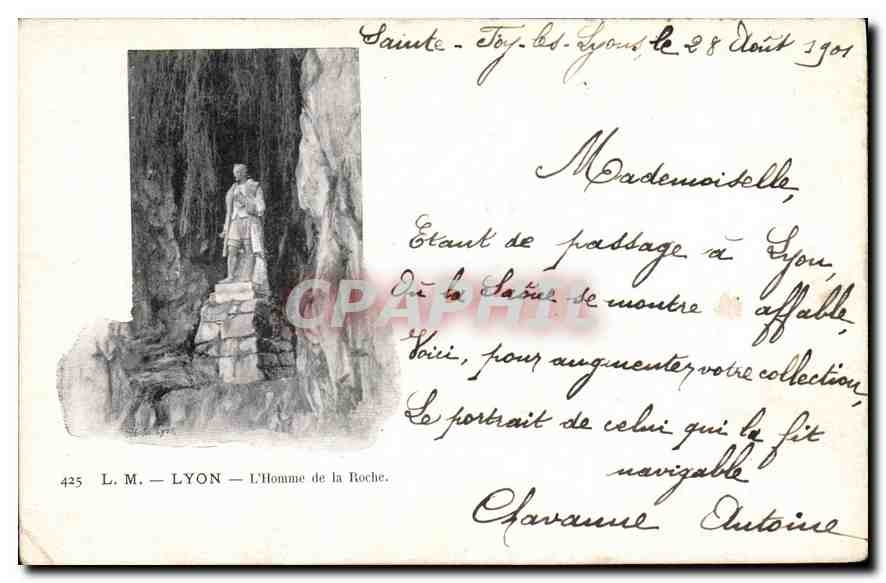 Sainte-Foy-les-Lyons, le 28 Août 1901
Mademoiselle,
Etant de passage à Lyon,
Où la Saône se montre affable,
Voici, pour augmenter votre collection,
Le portrait de celui qui la fit
navigable
Chavanne Antoine
CPAPHIL
425 L. M. — LYON — L'Homme de la Roche.